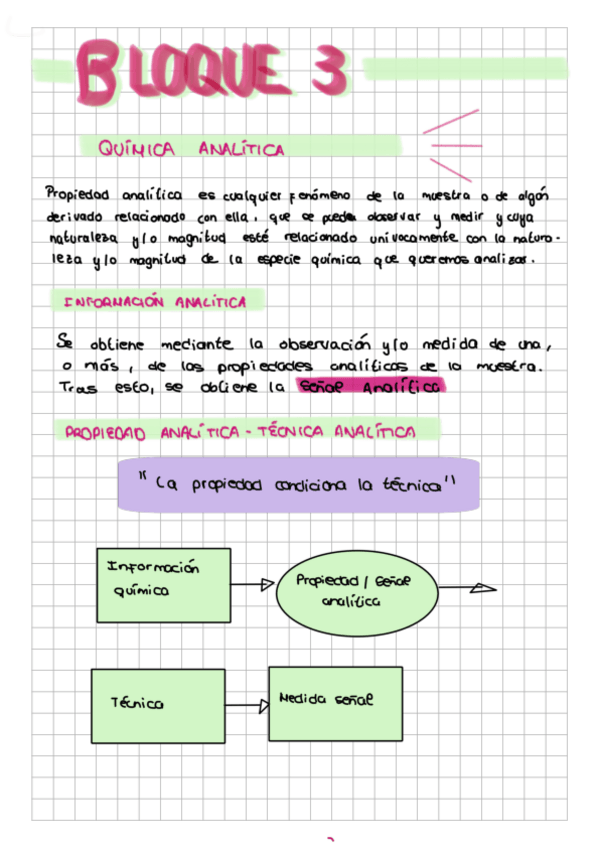 BLOQUE 3
QUÍMICA ANALÍTICA
Propiedad analítica es cualquier fenómeno de la muestra o de algún
derivado relacionado con ella, que se pueda observar y medir y cuya
naturaleza y/o magnitud esté relacionado univocamente con la natura-
leza y/o magnitud de la especie química que queremos analizar.
INFORMACIÓN ANALÍTICA
Se obtiene mediante la observación y/o medida de una,
o más, de las propiedades analíticas de la muestra.
Tras esto, se obtiene la señal analítica
PROPIEDAD ANALÍTICA - TÉCNICA ANALÍTICA
"La propiedad condiciona la técnica"
Información
química
Propiedad / señal
analítica
Técnica
Medida señal